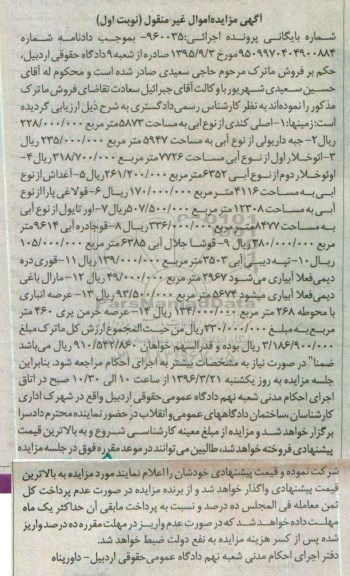 آگهی مزایده اموال غیر منقول (نوبت اول)
شماره بایگانی پرونده اجرائی:۹۶۰۰۳۵- بموجب دادنامه شماره
۹۵۰۹۹۷۰۴۰۴۹۰۰۸۸۴ مورخ ۱۳۹۵/۹/۳ صادره از شعبه ۹ دادگاه حقوقی اردبیل،
حکم بر فروش ماترک مرحوم حاجی سعیدی صادر شده است و محکوم له آقای
حسین سعیدی شهریور با وکالت آقای جبرائیل سعادت تقاضای فروش ماترک
مذکور را نموده‌اند به نظر کارشناس رسمی دادگستری به شرح ذیل ارزیابی گردیده
است: زمینها: ۱-اصلی کندی از نوع آبی به مساحت ۵۸۷۳ متر مربع ۲۲۸/۰۰۰/۰۰۰
ریال ۲- جبه داریولی از نوع آبی به مساحت ۵۹۴۷ متر مربع ۲۳۵/۰۰۰/۰۰۰ ریال
۳-اتوخلار اول از نوع آبی مساحت ۷۷۲۶ متر مربع ۳۱۸/۷۰۰/۰۰۰ ریال ۴-
اوتوخلار دوم از نوع آبی ۶۳۵۲ متر مربع ۲۶۱/۲۰۰/۰۰۰ ریال ۵- آغداش از نوع
آبی به مساحت ۴۱۱۶ متر مربع ۱۷۰/۰۰۰/۰۰۰ ریال ۶- قولاغی پارا از نوع
آبی به مساحت ۱۲۳۰۸ متر مربع ۵۰۷/۵۰۰/۰۰۰ ریال ۷- اور تایول از نوع آبی
به مساحت ۸۴۷۷ متر مربع ۳۳۶/۰۰۰/۰۰۰ ریال ۸- قوجادره آبی ۹۶۱۴ متر
مربع ۳۸۰/۰۰۰/۰۰۰ ریال ۹- قوشا جلال آبی ۶۳۸۵ متر مربع ۱۰۵/۰۰۰/۰۰۰
ریال ۱۰- تپه دیبی آبی ۳۵۰۳ متر مربع ۱۳۹/۰۰۰/۰۰۰ ریال ۱۱- قوری دره
دیمی فعلا آبیاری می‌شود ۲۹۶۷ متر مربع ۴۹/۰۰۰/۰۰۰ ریال ۱۲- مارال باغی
دیمی فعلا آبیاری میشود ۵۶۷۴ متر مربع ۹۳/۵۰۰/۰۰۰ ریال ۱۳- عرصه انباری
با محوطه ۲۶۸ متر مربع ۱۳۴/۰۰۰/۰۰۰ ریال ۱۴- عرصه خرمن یری ۴۶۰ متر
مربع به مبلغ ۲۳۰/۰۰۰/۰۰۰ ریال من حیث المجموع ارزش کل ماترک مبلغ
۳/۱۸۶/۹۰۰/۰۰۰ ریال بوده و قدرالسهم خواهان ۹۱۰/۵۴۲/۸۶۰ ریال می‌باشد
ضمنا" در صورت نیاز به مشخصات بیشتر به اجرای احکام مراجعه شود. بنابراین
جلسه مزایده به روز یکشنبه ۱۳۹۶/۳/۲۱ از ساعت ۱۰ الی ۱۰/۳۰ صبح در اتاق
اجرای احکام مدنی شعبه نهم دادگاه عمومی حقوقی اردبیل واقع در شهرک اداری
کارشناسان،ساختمان دادگاههای عمومی و انقلاب در حضور نماینده محترم دادسرا
برگزار خواهد شد و مزایده از مبلغ معینه کارشناسی شروع و به بالاترین قیمت
پیشنهادی فروخته خواهد شد، طالبین می‌توانند در موعد مقرره فوق در جلسه مزایده
شرکت نموده و قیمت پیشنهادی خودشان را اعلام نمایند مورد مزایده به بالاترین
قیمت پیشنهادی واگذار خواهد شد و از برنده مزایده در صورت عدم پرداخت کل
ثمن معامله فی المجلس ده درصد و نسبت به پرداخت مابقی آن حداکثر یک ماه
مهلت داده خواهد شد که در صورت عدم واریز در مهلت مقرره ده درصد واریز
شده پس از کسر هزینه مزایده به نفع دولت ضبط خواهد شد.
دفتر اجرای احکام مدنی شعبه نهم دادگاه عمومی حقوقی اردبیل- داورپناه